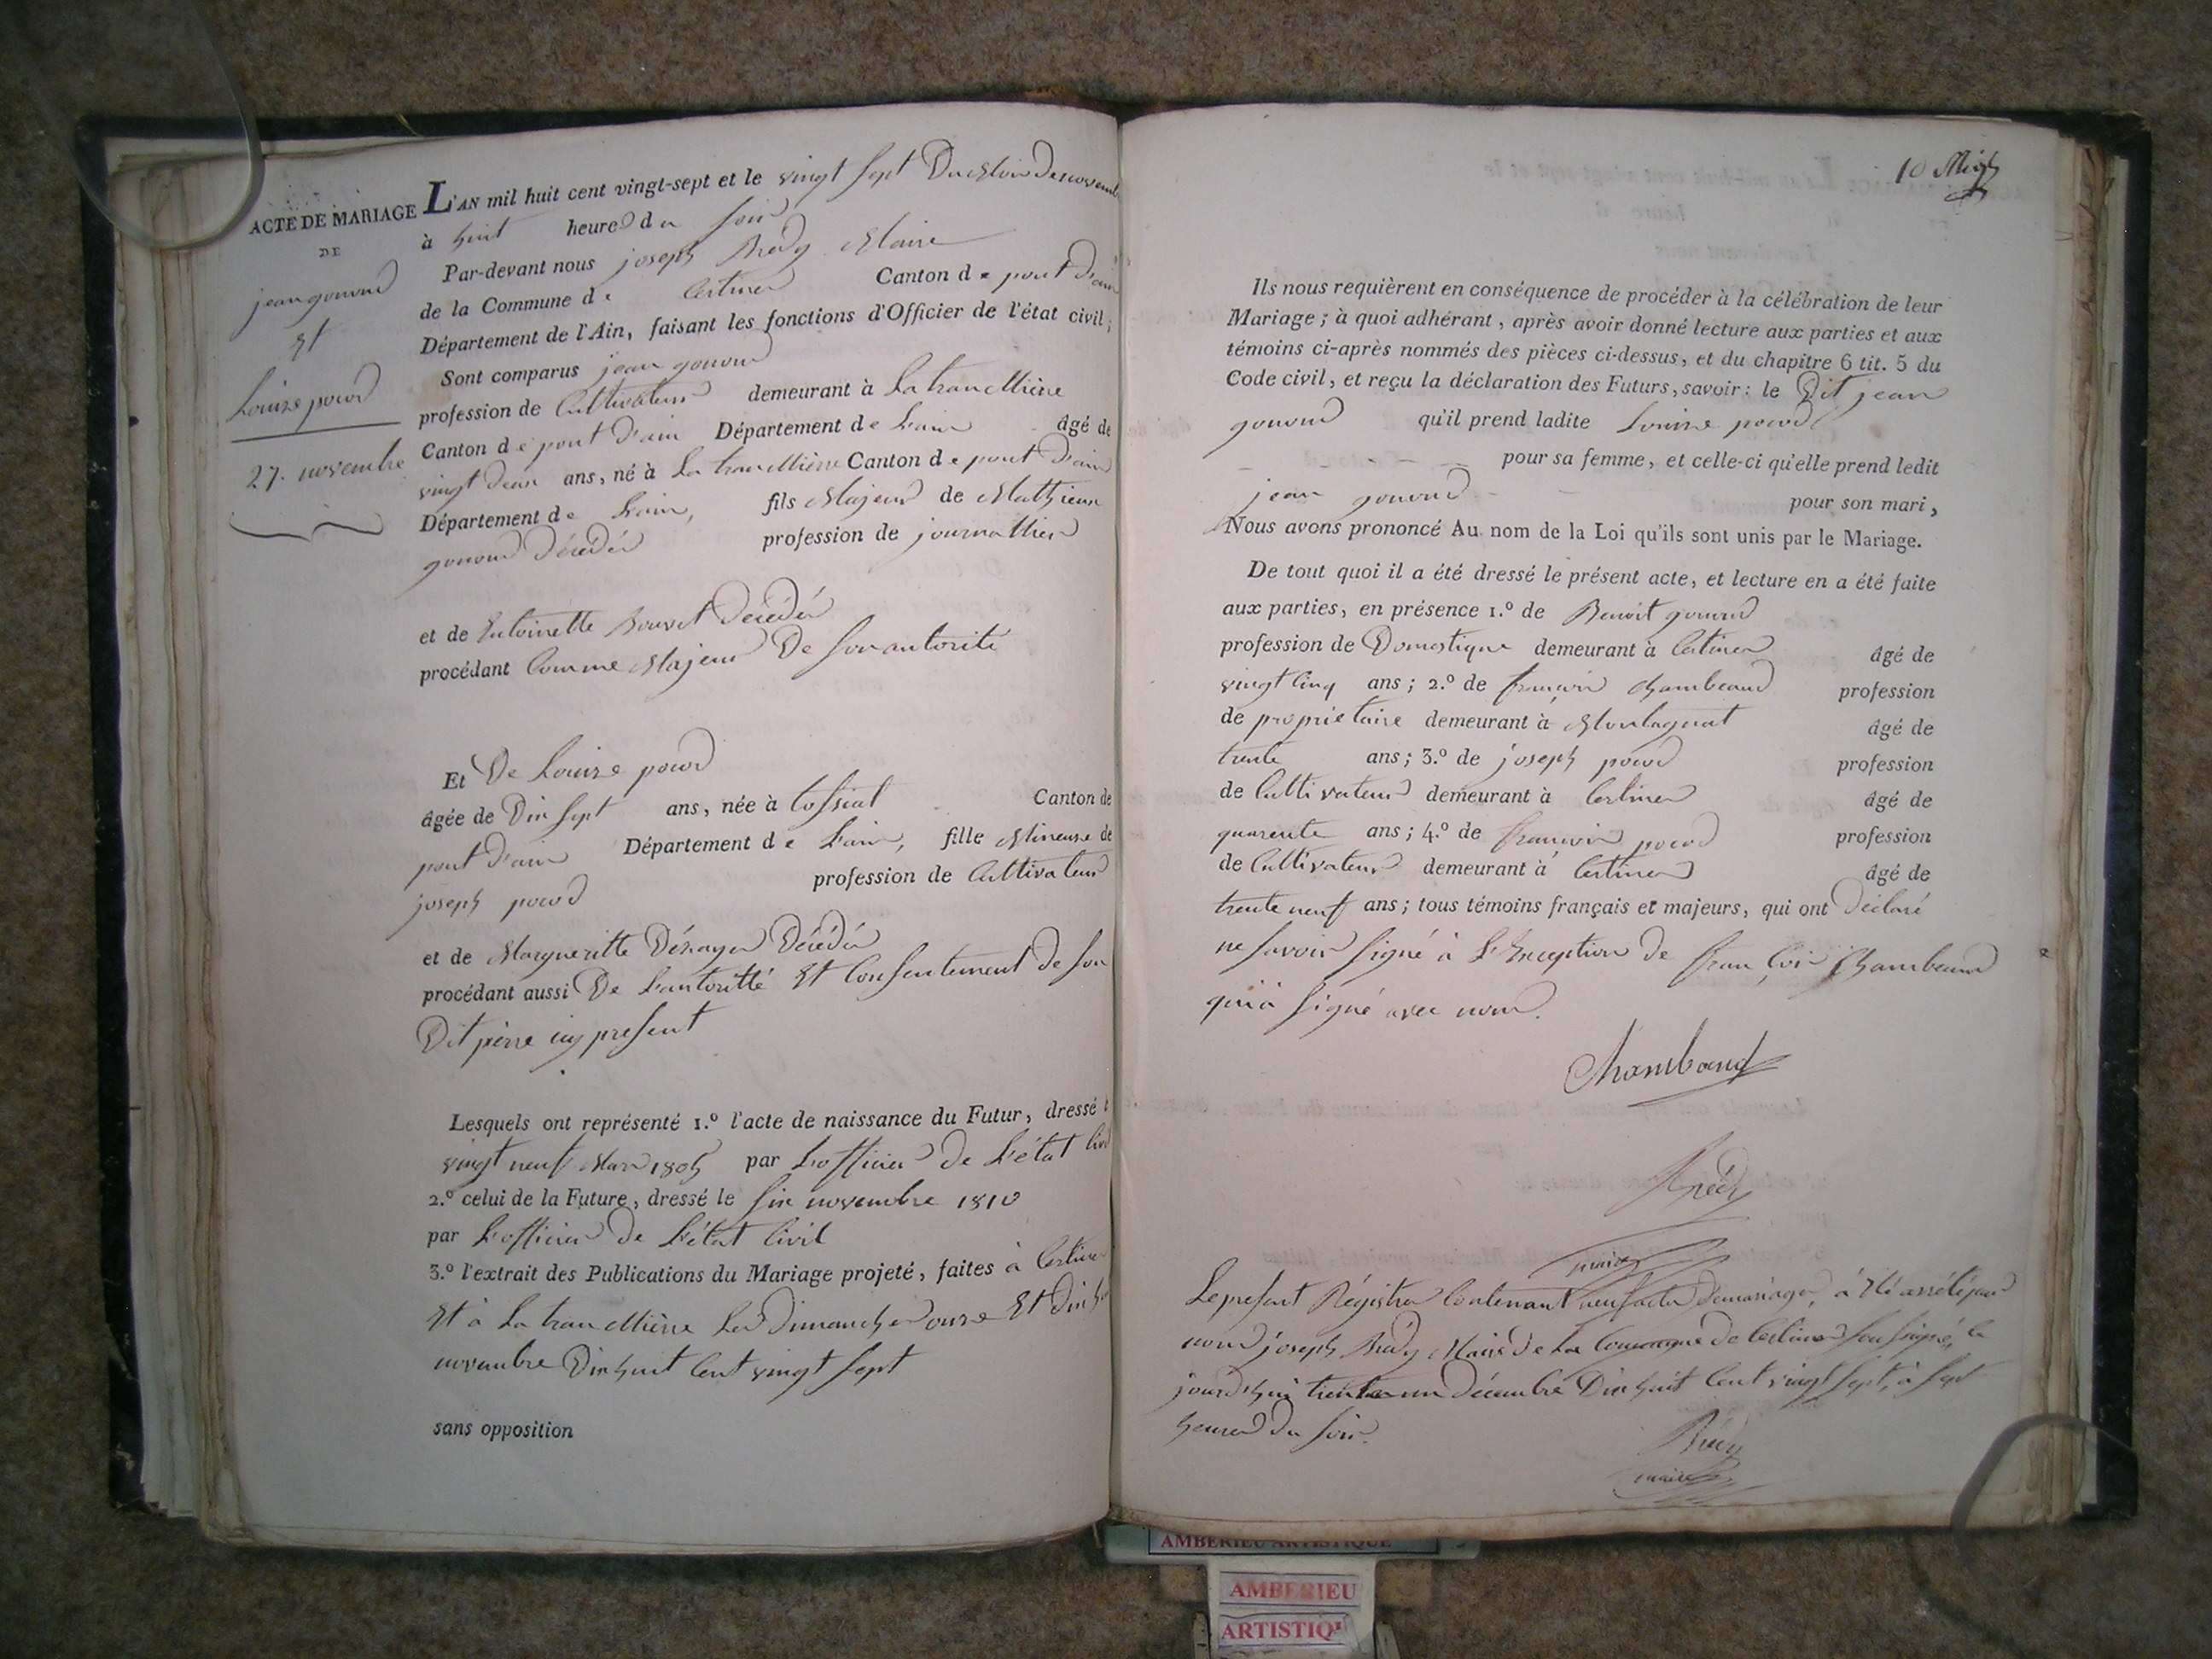 ACTE DE MARIAGE
DE
jean gonond
Et
Louise pocod
27. novembre
L'AN mil huit cent vingt-sept et le vingt sept Du Mois de novemb
à huit heures du soir
Par-devant nous joseph Maire
de la Commune de Certines Canton de pont d'ain
Département de l'Ain, faisant les fonctions d'Officier de l'état civil;
Sont comparus jean gonond
profession de Cultivateur demeurant à La tranclière
Canton de pont d'ain Département de L'ain âgé de
vingt deux ans, né à La tranclière Canton de pont d'ain
Département de L'ain, fils Majeur de Mathieu
gonond Décédé profession de journallier
et de Entoinette Bouvet Décédée
procédant Comme Majeur De son autorité
Et De Louise pocod
âgée de Dix sept ans, née à tossiat Canton de
pont d'ain Département de L'ain, fille Mineure de
joseph pocod profession de Cultivateur
et de Margueritte Décédée
procédant aussi De L'autorité Et Consentement de son
Dit père icy present
Lesquels ont représenté 1.º l'acte de naissance du Futur, dressé
vingt neuf Mars 1805 par L'officier de L'état civil
2.º celui de la Future, dressé le six novembre 1810
par L'officier de L'état Civil
3.º l'extrait des Publications du Mariage projeté, faites à Certines
Et à La tranclière Les Dimanches onze Et dix hu
novembre Dix huit Cent vingt sept
sans opposition
10
Ils nous requièrent en conséquence de procéder à la célébration de leur
Mariage; à quoi adhérant, après avoir donné lecture aux parties et aux
témoins ci-après nommés des pièces ci-dessus, et du chapitre 6 tit. 5 du
Code civil, et reçu la déclaration des Futurs, savoir: le Dit jean
gonond qu'il prend ladite Louise pocod
pour sa femme, et celle-ci qu'elle prend ledit
jean gonond pour son mari,
Nous avons prononcé Au nom de la Loi qu'ils sont unis par le Mariage.
De tout quoi il a été dressé le présent acte, et lecture en a été faite
aux parties, en présence 1.º de Benoit gonond
profession de Domestique demeurant à Certines âgé de
vingt Cinq ans; 2.º de françois Chambeaud profession
de proprietaire demeurant à Montagnat âgé de
trente ans; 3.º de joseph pocod profession
de Cultivateur demeurant à Certines âgé de
quarente ans; 4.º de françois pocod profession
de Cultivateur demeurant à Certines âgé de
trente neuf ans; tous témoins français et majeurs, qui ont Déclaré
ne savoir signé à L'Exception de françois Chambeaud
qui à signé avec nous.
Chambaud
maire
Le present Régistre Contenant neuf actes de mariage, à Eté arrêté par
nous joseph Maire de La Commune de Certines soussigné, ce
jourd'hui trente un décembre Dix huit Cent vingt sept, à sept
heures Du soir.
maire
AMBERIEU ARTISTIQUE
AMBERIEU
ARTISTIQU